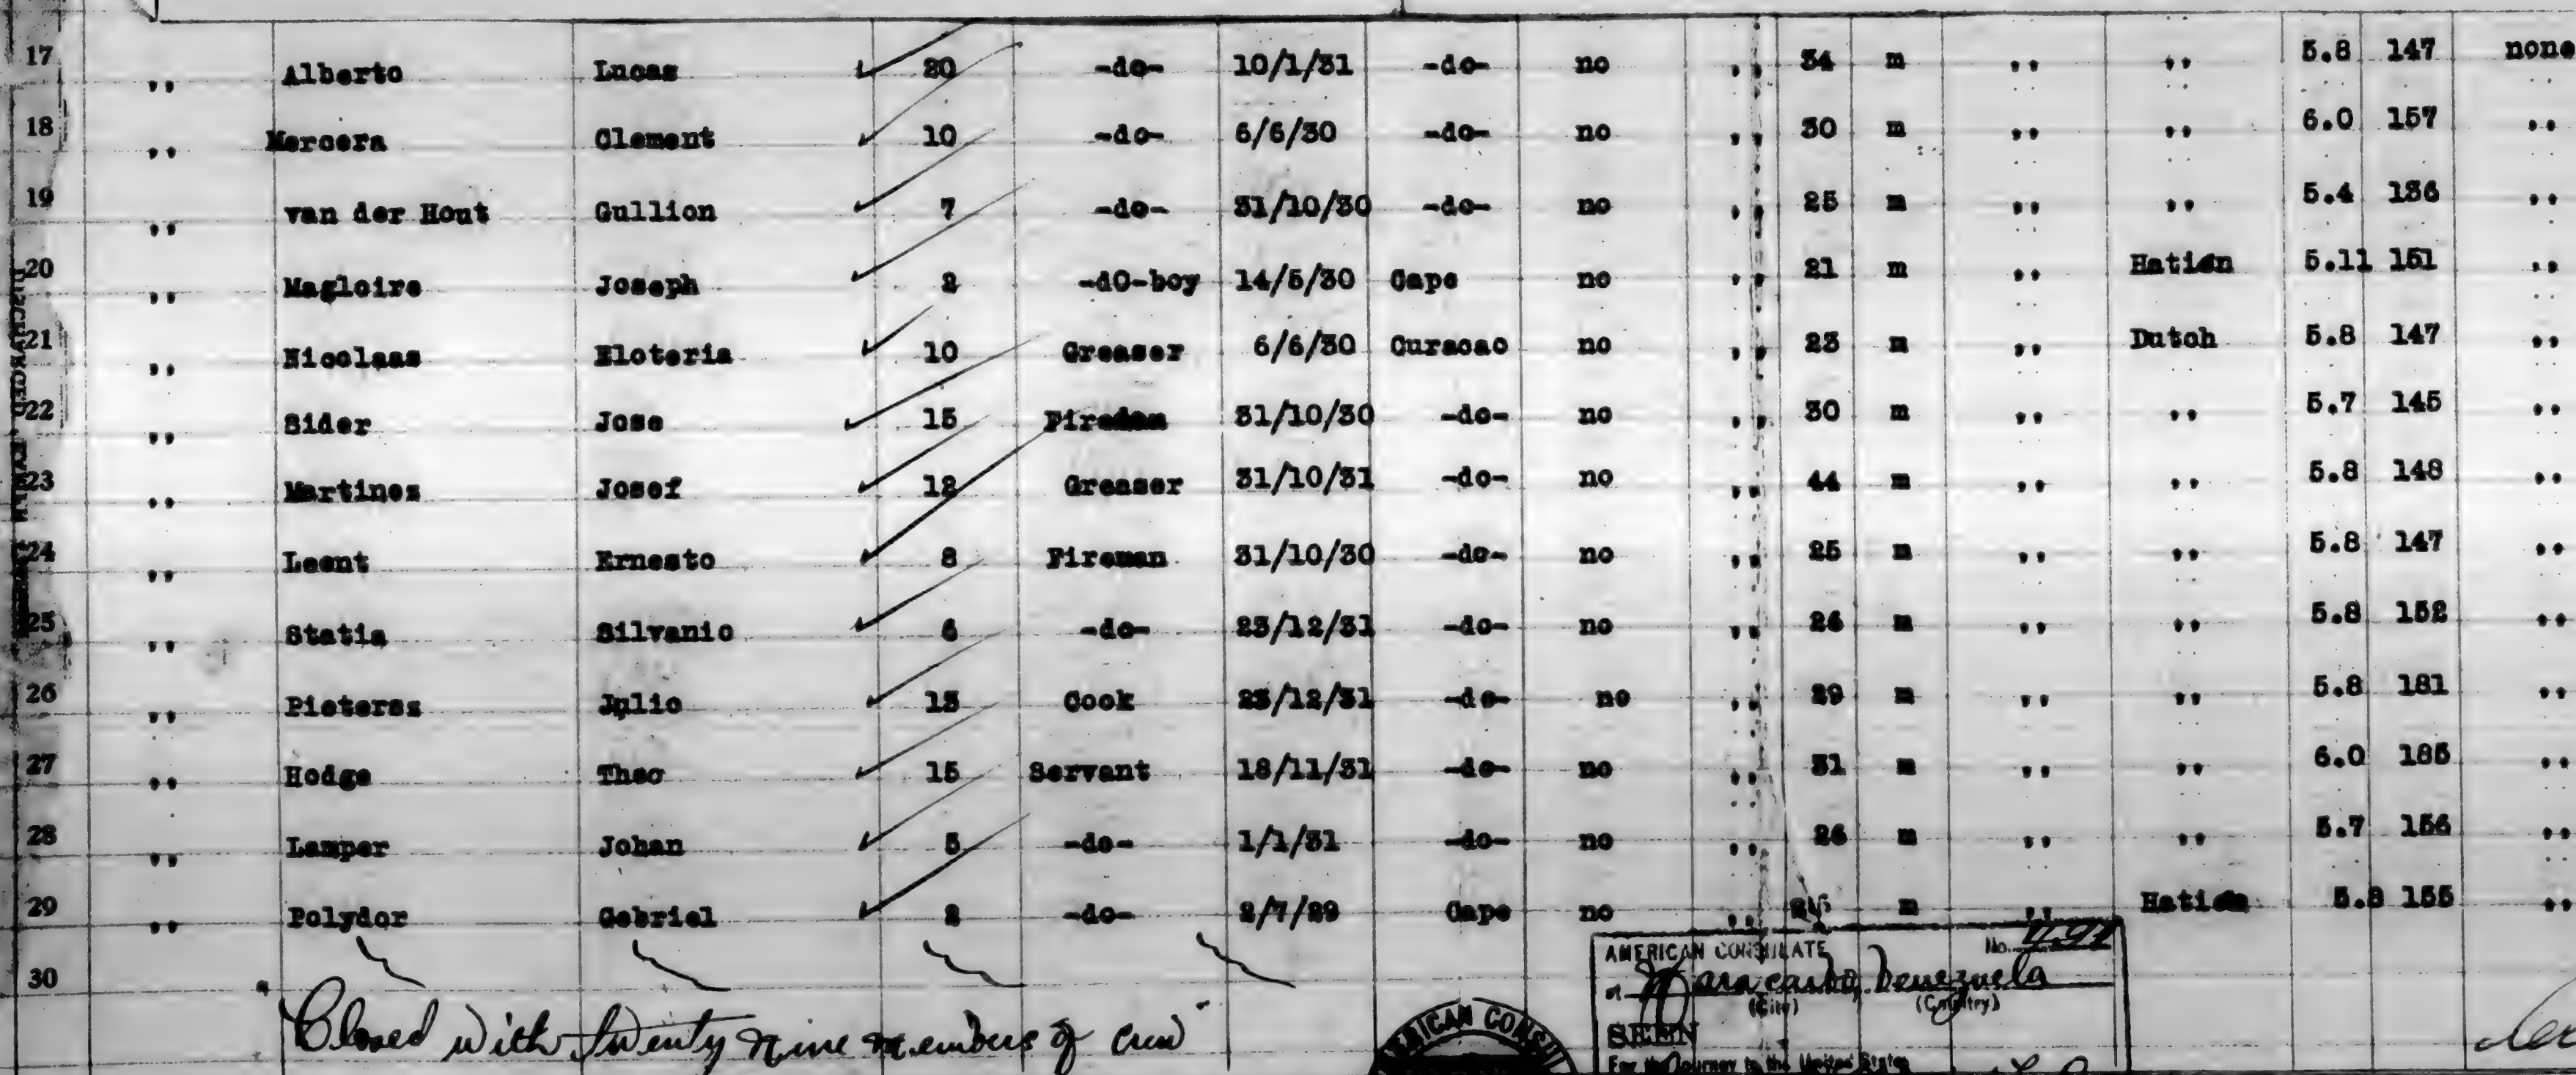 17 ,, Alberto Lucas 20 -do- 10/1/31 -do- no ,, 34 m ,, ,, 5.8 147 none
18 ,, Mercera Clement 10 -do- 6/6/30 -do- no ,, 30 m ,, ,, 6.0 157 ,,
19 ,, van der Hout Gullion 7 -do- 31/10/30 -do- no ,, 25 m ,, ,, 5.4 136 ,,
20 ,, Magloire Joseph 2 -dO-boy 14/5/30 Cape no ,, 21 m ,, Hatien 5.11 151 ,,
21 ,, Nicolaas Eloteria 10 Greaser 6/6/30 Curacao no ,, 23 m ,, Dutch 5.8 147 ,,
22 ,, Sider Jose 15 Fireman 31/10/30 -do- no ,, 30 m ,, ,, 5.7 145 ,,
23 ,, Martinez Josef 12 Greaser 31/10/31 -do- no ,, 44 m ,, ,, 5.8 148 ,,
24 ,, Leent Ernesto 8 Fireman 31/10/30 -do- no ,, 25 m ,, ,, 5.8 147 ,,
25 ,, Statia Silvanio 6 -do- 23/12/31 -do- no ,, 26 m ,, ,, 5.8 152 ,,
26 ,, Pietersz Julio 13 Cook 23/12/31 -do- no ,, 29 m ,, ,, 5.8 181 ,,
27 ,, Hodge Theo 15 Servant 18/11/31 -do- no ,, 31 m ,, ,, 6.0 185 ,,
28 ,, Lamper Johan 5 -do- 1/1/31 -do- no ,, 26 m ,, ,, 5.7 156 ,,
29 ,, Polydor Gebriel 2 -do- 2/7/29 Cape no ,, m ,, Hatien 5.8 155 ,,
30
Closed with twenty nine members of crew
AMERICAN CONSULATE No.
at Maracaibo, Venezuela
(City) (Country)
SEEN
For the Journey to the United States
AMERICAN CONSU